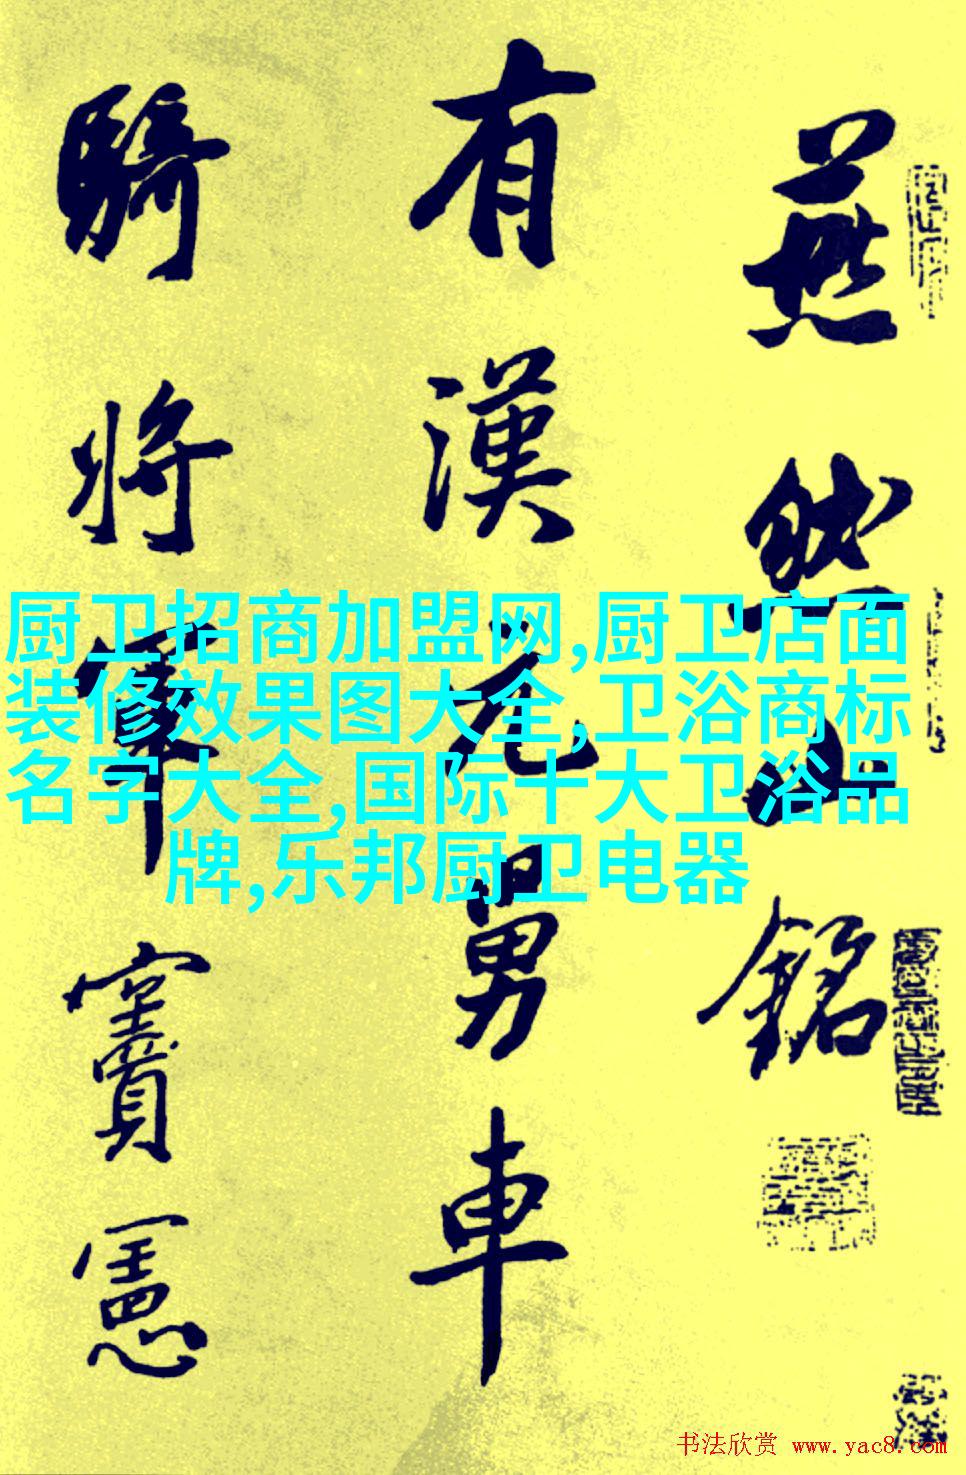 燕然山銘
有漢元舅車
騎將軍竇憲
厨卫招商加盟网,厨卫店面
装修效果图大全,卫浴商标
名字大全,国际十大卫浴品
牌,乐邦厨卫电器
书法欣赏 www.yac8.com